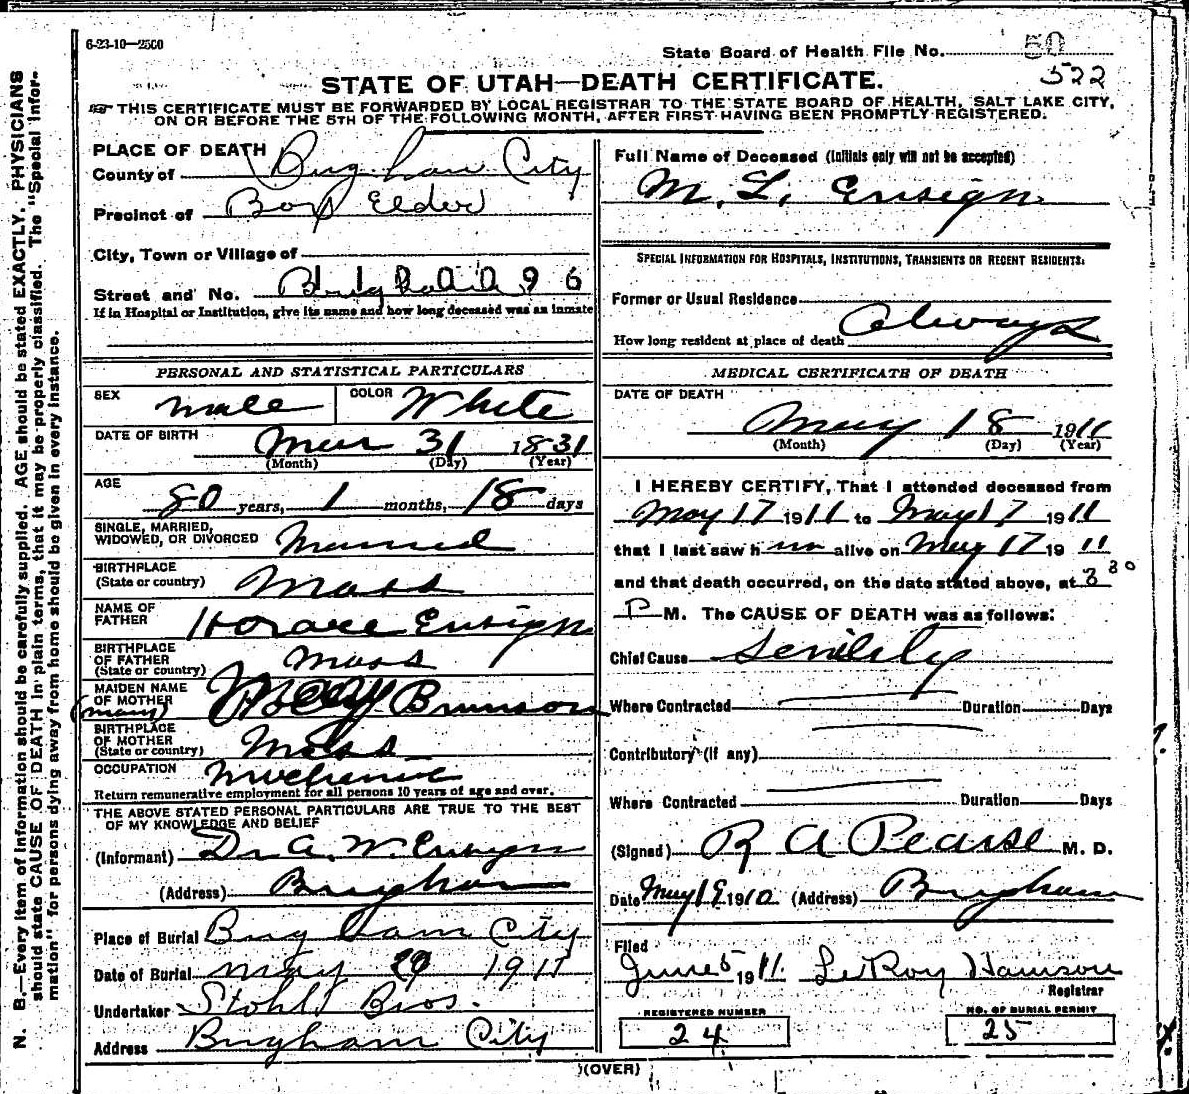 6-23-10—2500
State Board of Health File No. 50
522
STATE OF UTAH—DEATH CERTIFICATE.
THIS CERTIFICATE MUST BE FORWARDED BY LOCAL REGISTRAR TO THE STATE BOARD OF HEALTH, SALT LAKE CITY,
ON OR BEFORE THE 5TH OF THE FOLLOWING MONTH, AFTER FIRST HAVING BEEN PROMPTLY REGISTERED.
PLACE OF DEATH
County of Brigham City
Precinct of Box Elder
City, Town or Village of
Street and No. 96
If in Hospital or Institution, give its name and how long deceased was an inmate
PERSONAL AND STATISTICAL PARTICULARS
SEX male COLOR White
DATE OF BIRTH Mar 31 1831
(Month) (Day) (Year)
AGE
80 years, 1 months, 18 days
SINGLE, MARRIED,
WIDOWED, OR DIVORCED Married
BIRTHPLACE
(State or country) Mass
NAME OF
FATHER Horace Ensign
BIRTHPLACE
OF FATHER
(State or country) Mass
MAIDEN NAME
OF MOTHER Mary Brunson
(mary)
BIRTHPLACE
OF MOTHER
(State or country) Mass
OCCUPATION Mechanic
Return remunerative employment for all persons 10 years of age and over.
THE ABOVE STATED PERSONAL PARTICULARS ARE TRUE TO THE BEST
OF MY KNOWLEDGE AND BELIEF
(Informant) Dr A. W. Ensign
(Address) Brigham
Place of Burial Brigham City
Date of Burial may 1911
Undertaker Stohl Bros.
Address Brigham City
Full Name of Deceased (Initials only will not be accepted)
M. L. Ensign
SPECIAL INFORMATION FOR HOSPITALS, INSTITUTIONS, TRANSIENTS OR RECENT RESIDENTS:
Former or Usual Residence
How long resident at place of death Always
MEDICAL CERTIFICATE OF DEATH
DATE OF DEATH
May 18 1911
(Month) (Day) (Year)
I HEREBY CERTIFY, That I attended deceased from
May 17 1911 to May 17 1911
that I last saw him alive on May 17 1911
and that death occurred, on the date stated above, at 3 30
P M. The CAUSE OF DEATH was as follows:
Chief Cause Senility
Where Contracted Duration Days
Contributory (if any)
Where Contracted Duration Days
(Signed) R A Pearse M. D.
Date May 19 1910 (Address) Brigham
Filed
June 5 1911. LeRoy Hamson
Registrar
REGISTERED NUMBER
24
NO. OF BURIAL PERMIT
25
(OVER)
N. B.—Every item of information should be carefully supplied. AGE should be stated EXACTLY. PHYSICIANS
should state CAUSE OF DEATH in plain terms, that it may be properly classified. The "Special Infor-
mation" for persons dying away from home should be given in every instance.